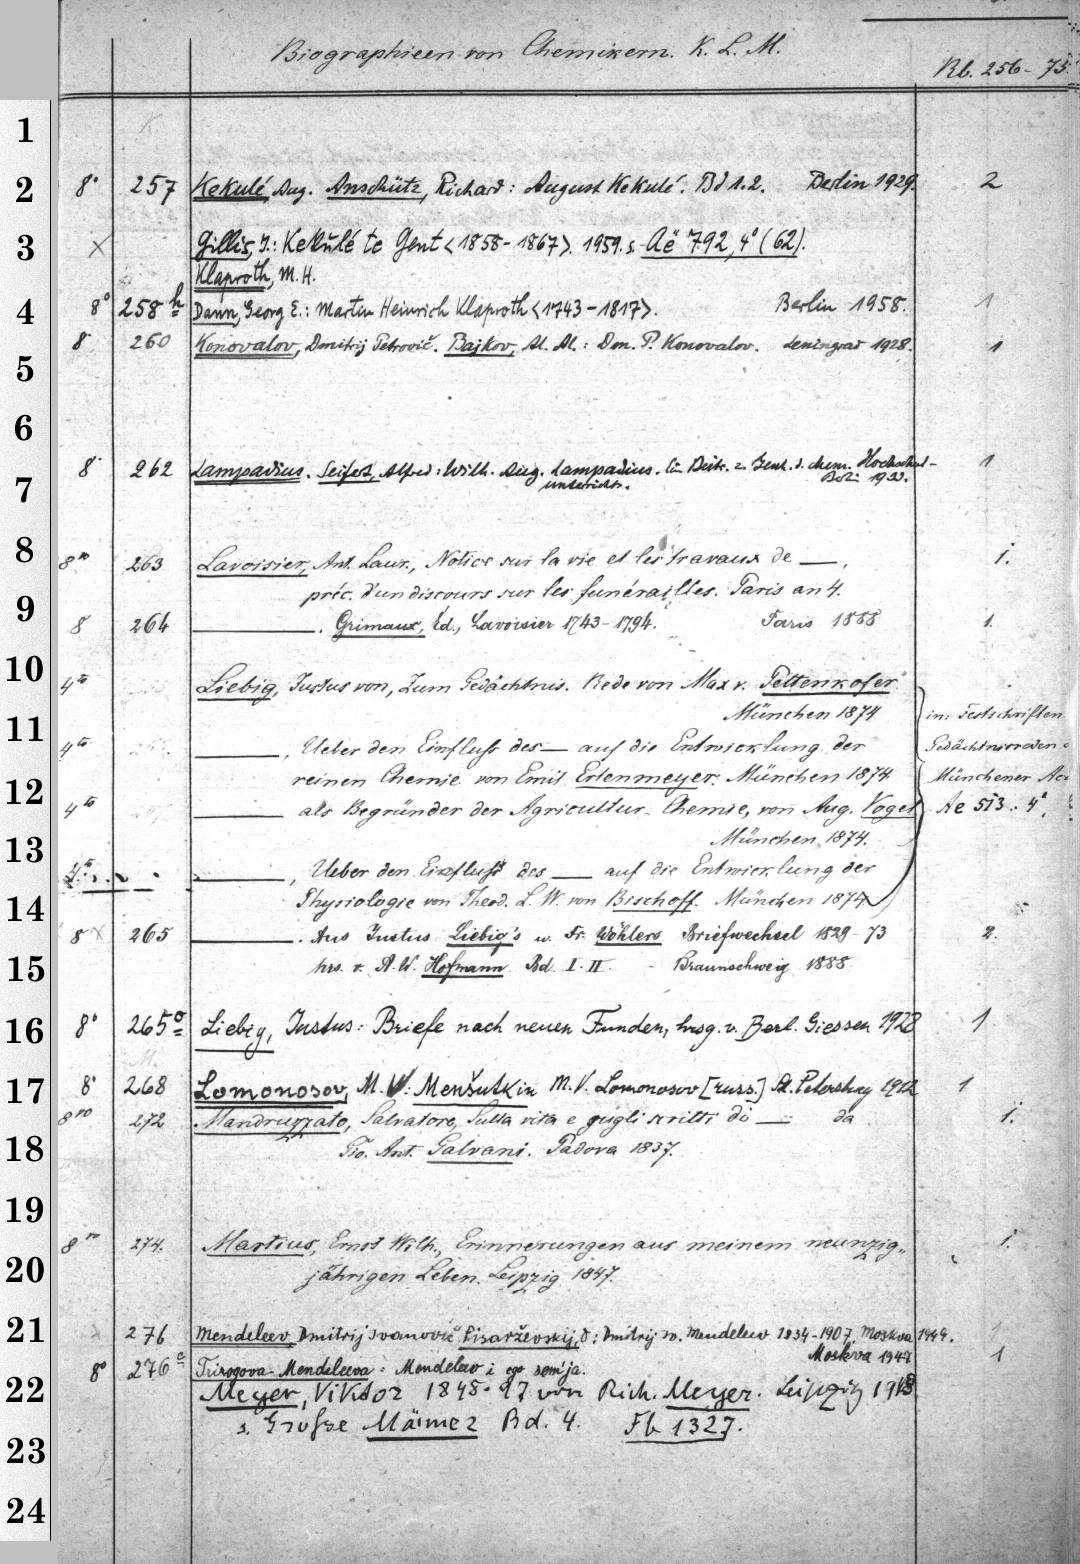 Biographieen von Chemikern. K. L. M.
Rb. 256-75
1
2 8° 257 Kekulé, Aug. Anschütz, Richard: August Kekulé. Bd 1.2. Berlin 1929. 2
3 X Gillis, J.: Kekulé te Gent <1858-1867>. 1959. s. Aë 792, 4° (62).
Klaproth, M. H.
4 8° 258 h Dann, Georg E.: Martin Heinrich Klaproth <1743-1817>. Berlin 1958. 1
8° 260 Konovalov, Dmitrij Petrovič. Bajkov, Al. Al.: Dm. P. Konovalov. Leningrad 1928. 1
5
6
8° 262 Lampadius. Seifert, Alfred: Wilh. Aug. Lampadius. chem. Hochschul- 1
7 unterrichts. Berlin 1933.
8 8vo 263 Lavoisier, Ant. Laur., Notice sur la vie et les travaux de —, 1.
préc. d'un discours sur les funérailles. Paris an 4.
9 8 264 —. Grimaux, Ed., Lavoisier 1743-1794. Paris 1888 1.
10 4to Liebig, Justus von, Zum Gedächtnis. Rede von Max v. Pettenkofer
München 1874 in: Festschriften
11 4to —, Ueber den Einfluss des — auf die Entwicklung der Gedächtnisreden
reinen Chemie von Emil Erlenmeyer. München 1874 Münchener
12 4to — als Begründer der Agricultur-Chemie, von Aug. Vogel Ae 513. 4°.
München 1874.
13 4to —, Ueber den Einfluss des — auf die Entwicklung der
14 Physiologie von Theod. L. W. von Bischoff. München 1874
8 X 265 —. Aus Justus Liebig's u. Fr. Wöhlers Briefwechsel 1829-73 2.
15 hrs. v. A. W. Hofmann Bd. I. II - Braunschweig 1888
16 8° 265 o Liebig, Justus: Briefe nach neuen Funden, hrsg. v. Berl. Giessen 1928 1
17 8° 268 Lomonosov, M. V. Menšutkin M. V. Lomonosov [russ.] St. Petersburg 1912 1
8vo 272 Mandruzzato, Salvatore, Sulla vita e sugli scritti di — da 1.
18 Fio. Ant. Galvani. Padova 1837.
19
8vo 274. Martius, Ernst Wilh., Erinnerungen aus meinem neunzig- 1.
20 jährigen Leben. Leipzig 1847.
21 276 Mendeleev, Dmitrij Ivanovič Pisarževskij, O: Dmitrij Iv. Mendeleev 1834-1907. Moskva 1949. 1
Moskva 1947
8° 276 c Trirogova-Mendeleeva: Mendeleev i ego sem'ja. 1
22 Meyer, Viktor 1848-97 von Rich. Meyer. Leipzig 1918
s. Grosse Männer Bd. 4. Fb 1327.
23
24